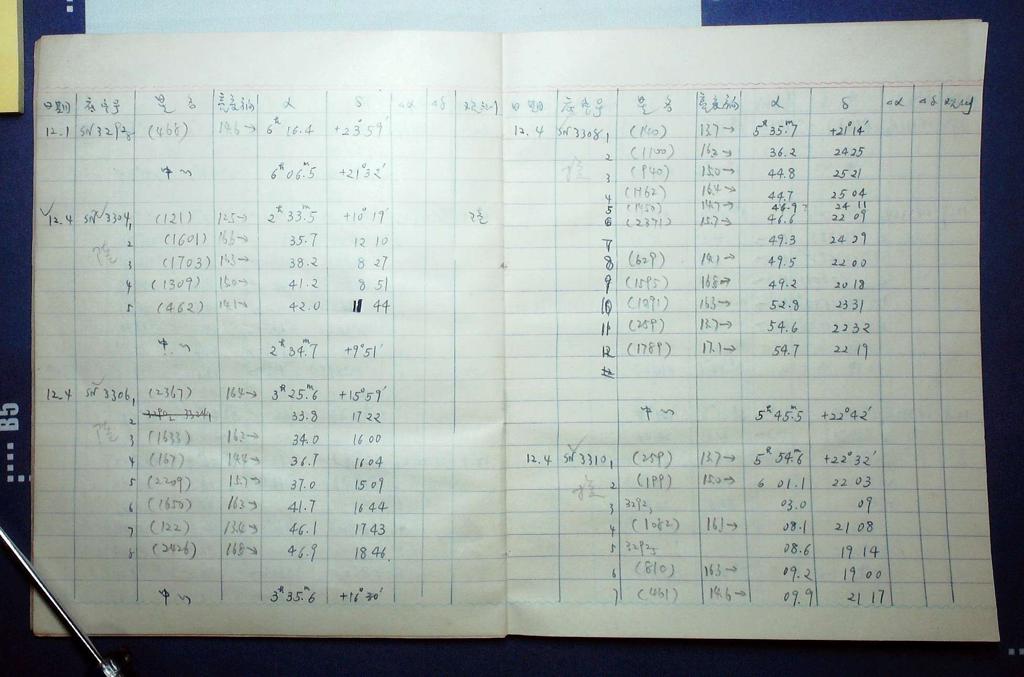 日期 底片号 星名 α δ Δα Δδ
12.1 SN3292₈ (468) 14.6→ 6ʰ16.4ᵐ +23°59′
中心 6ʰ06.5ᵐ +21°32′
12.4 SN3304,₁ (121) 12.5→ 2ʰ33.5ᵐ +10°19′
2 (1601) 16.6→ 35.7 12 10
3 (1703) 38.2 8 27
4 (1309) 15.0→ 41.2 8 51
5 (462) 14.1→ 42.0 11 44
中心 2ʰ34.7ᵐ +9°51′
12.4 SN3306,₁ (2367) 16.4→ 3ʰ25.6ᵐ +15°59′
2 33.8 17 22
3 (1633) 16.2→ 34.0 16 00
4 (167) 14.4→ 36.7 16 04
5 (2209) 15.7→ 37.0 15 09
6 (1650) 16.3→ 41.7 16 44
7 (122) 13.4→ 46.1 17 43
8 (2426) 16.8→ 46.9 18 46
中心 3ʰ35.6ᵐ +16°30′
日期 底片号 星名 α δ Δα Δδ
12.4 SN3308,₁ 13.7→ 5ʰ35.7ᵐ +21°14′
2 (1100) 16.2→ 36.2 24 25
3 (940) 15.0→ 44.8 25 21
4 (1162) 16.4→ 44.7 25 04
5 (1450) 14.7→ 46.9 24 11
6 (2371) 15.7→ 46.6 22 09
7 49.3 24 29
8 (629) 14.1→ 49.5 22 00
9 (1595) 16.8→ 49.2 20 18
10 (1291) 16.3→ 52.8 23 31
11 (259) 13.7→ 54.6 22 32
12 (1789) 17.1→ 54.7 22 19
中心 5ʰ45.5ᵐ +22°42′
12.4 SN3310,₁ (259) 13.7→ 5ʰ54.6ᵐ +22°32′
2 (199) 15.0→ 6 01.1 22 03
3 3292₃ 03.0 09
4 (1082) 16.1→ 08.1 21 08
5 3292₅ 08.6 19 14
6 (810) 16.3→ 09.2 19 00
7 (461) 14.6→ 09.9 21 17
B5